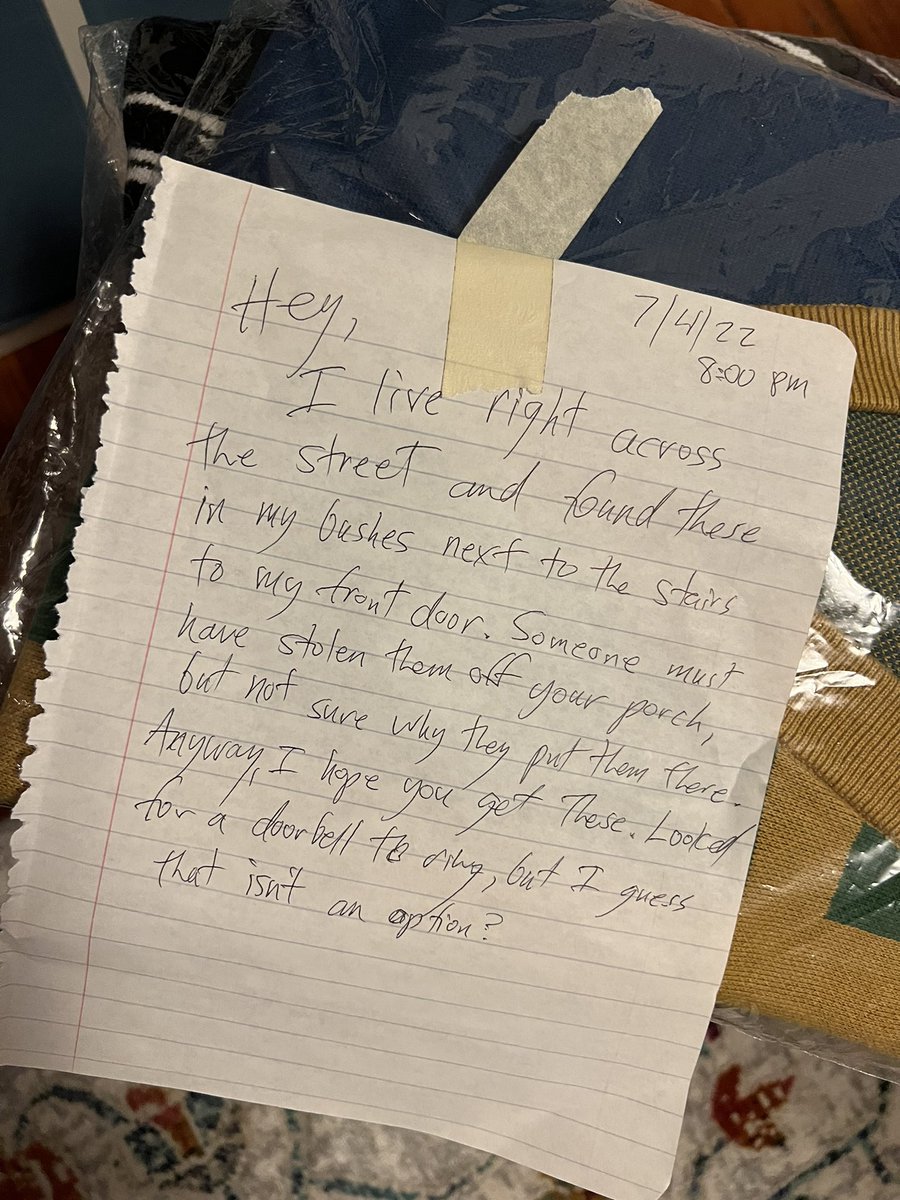 7/4/22
8:00 pm
Hey,
I live right across
the street and found these
in my bushes next to the stairs
to my front door. Someone must
have stolen them off your porch,
but not sure why they put them there.
Anyway, I hope you get these. Looked
for a doorbell to ring, but I guess
that isn't an option?